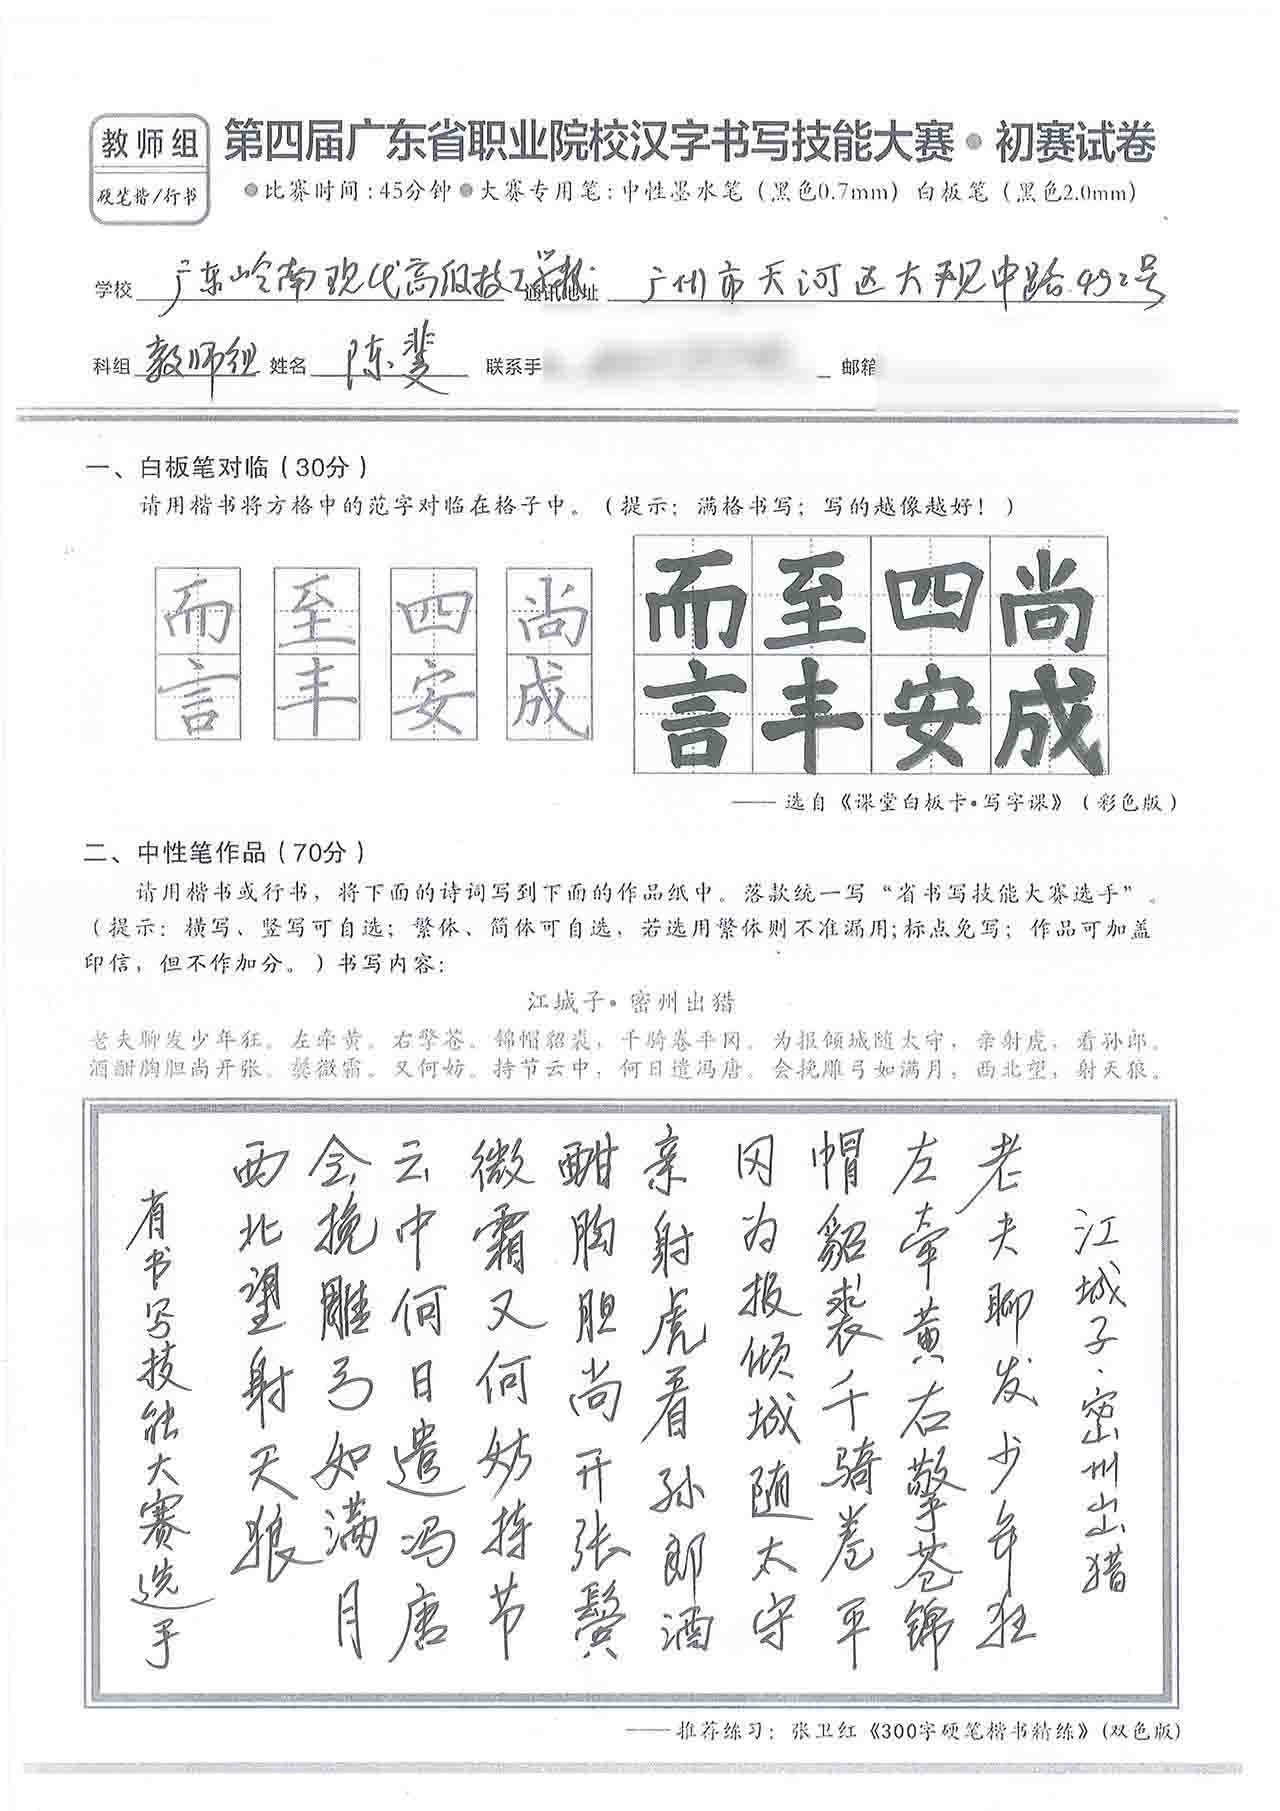 教师组
硬笔楷/行书
第四届广东省职业院校汉字书写技能大赛•初赛试卷
●比赛时间:45分钟●大赛专用笔:中性墨水笔（黑色0.7mm）白板笔（黑色2.0mm）
学校 广东岭南现代高级技工学校 通讯地址 广州市天河区大观中路492号
科组 教师组 姓名 陈斐 联系手 邮箱
一、白板笔对临（30分）
请用楷书将方格中的范字对临在格子中。（提示：满格书写；写的越像越好！）
而 至 四 尚 而至四尚
言 丰 安 成 言丰安成
——选自《课堂白板卡•写字课》（彩色版）
二、中性笔作品（70分）
请用楷书或行书，将下面的诗词写到下面的作品纸中。落款统一写“省书写技能大赛选手”。
（提示：横写、竖写可自选；繁体、简体可自选，若选用繁体则不准漏用;标点免写；作品可加盖
印信，但不作加分。）书写内容：
江城子•密州出猎
老夫聊发少年狂。左牵黄。右擎苍。锦帽貂裘，千骑卷平冈。为报倾城随太守，亲射虎，看孙郎。
酒酣胸胆尚开张。鬓微霜。又何妨。持节云中，何日遣冯唐。会挽雕弓如满月，西北望，射天狼。
江城子·密州出猎
老夫聊发少年狂
左牵黄右擎苍锦
帽貂裘千骑卷平
冈为报倾城随太守
亲射虎看孙郎酒
酣胸胆尚开张鬓
微霜又何妨持节
云中何日遣冯唐
会挽雕弓如满月
西北望射天狼
省书写技能大赛选手
——推荐练习：张卫红《300字硬笔楷书精练》(双色版)